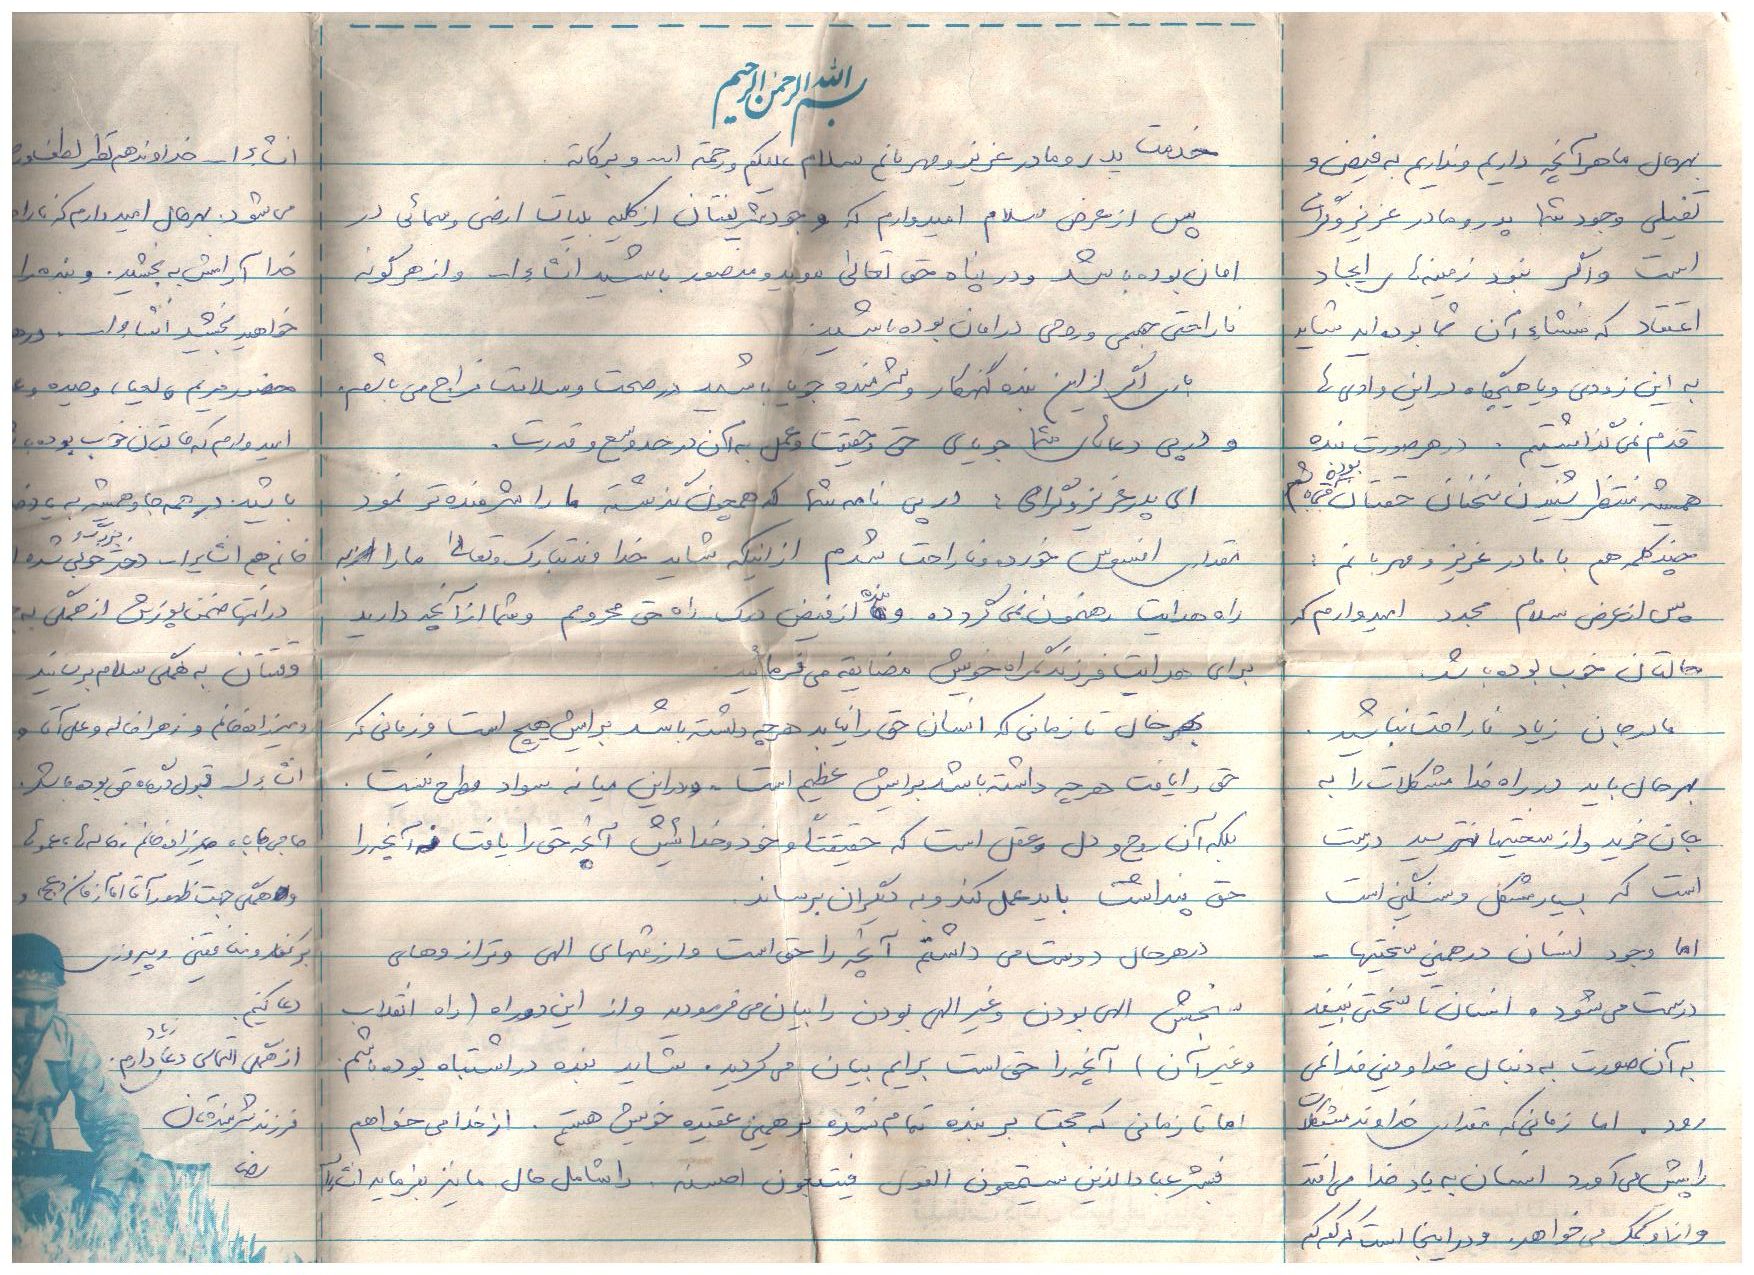 بسم الله الرحمن الرحیم
خدمت پدر و مادر عزیز و مهربانم سلام علیکم و رحمة الله و برکاته .
پس از عرض سلام امیدوارم که وجود شریفتان از کلیه بلیات ارضی و سمائی در
امان بوده باشد و در پناه حق تعالی موید و منصور باشید انشاءا... و از هر گونه
ناراحتی جسمی و روحی در امان بوده باشید.
باری اگر از این بنده گنهکار و شرمنده جویا باشید در صحت و سلامت مزاج می باشم.
و در پی دعاهای شما جویای حق و حقیقت و عمل به آن در حد وسع و قدرت .
ای پدر عزیز و گرامی : در پی نامه شما که همچون گذشته ما را شرمنده تر نمود
مقداری افسوس خورده و ناراحت شدم از اینکه شاید خداوند تبارک و تعالی ما را به
راه هدایت رهنمون نمی گردد و بنده از فیض درک راه حق محروم و شما از آنچه دارید
برای هدایت فرزند گمراه خویش مضایقه می فرمائید.
بهرحال تا زمانی که انسان حق را نیابد هر چه داشته باشد برایش هیچ است و زمانی که
حق را یافت هر چه داشته باشد برایش عظیم است . و در این میانه سواد مطرح نیست .
بلکه آن روح و دل و عقل است که حقیقتاً و خود و خدائیش آنچه حق را یافت نه آنچه را
حق پنداشت باید عمل کند و به دیگران برساند.
در هر حال دوست می داشتم آنچه را حق است و ارزشهای الهی و ترازوهای
سنجش الهی بودن و غیر الهی بودن را بیان می فرمودید و از این دو راه ( راه انقلاب
و غیر آن ) آنچه را حق است برایم بیان می کردید . شاید بنده در اشتباه بوده باشم
اما تا زمانی که حجت بر بنده تمام نشده بر همین عقیده خویش هستم . از خدا می خواهم
فبشر عباد الذین یستمعون القول فیتبعون احسنه . را شامل حال ما نیز بفرماید انشاءا...
بهرحال ما هر آنچه داریم و نداریم به فیض و
تفیلی وجود شما پدر و مادر عزیز و گرامی
است و اگر نبود زمینه های ایجاد
اعتقاد که منشاء آن شما بوده اید شاید
به این زودی و یا هیچگاه در این وادی ها
قدم نمی گذاشتیم . در هر صورت بنده
همیشه منتظر شنیدن سخنان حقتان بوده
چند کلمه هم با مادر عزیز و مهربانم :
پس از عرض سلام مجدد امیدوارم که
حالتان خوب بوده باشد.
مادر جان زیاد ناراحت نباشید .
بهرحال باید در راه خدا مشکلات را به
جان خرید و از سختیها نترسید درست
است که بسیار مشکل و سنگین است
اما وجود انسان در همین سختیها -
درست می شود . انسان تا سختی نبیند
به آن صورت به دنبال خدا و دین خدا نمی
رود . اما زمانی که مقداری خداوند مشکلات
را پیش می آورد انسان به یاد خدا می افتد
و از او کمک می خواهد. و در اینجا است که
انشاءا... خداوند هم نظر لطف
می شود. بهرحال امیدوارم که
خدا آرامش به بخشید. و بنده را
خواهید بخشید انشاءا...
حضور مریم و وحیده
امیدوارم که حالتان خوب بوده
باشید. در همه جا و همیشه به یاد
خانم هم انشاءا... دختر خوبی شده
در انتها ضمن پوزش از همگی
وقتتان به همگی سلام برسانید
و میرزاده خانم و زهرا خاله و علی آقا و
انشاءا... قبول درگاه حق بوده باشد.
حاجی بابا، میرزاده خانم، خاله ها، عموها
و همگی جهت ظهور آقا امام زمان (عج) و
بر کفار و منافقین و پیروزی
دعا کنیم.
از همگی التماس دعا زیاد دارم.
فرزند شرمنده تان
رضا